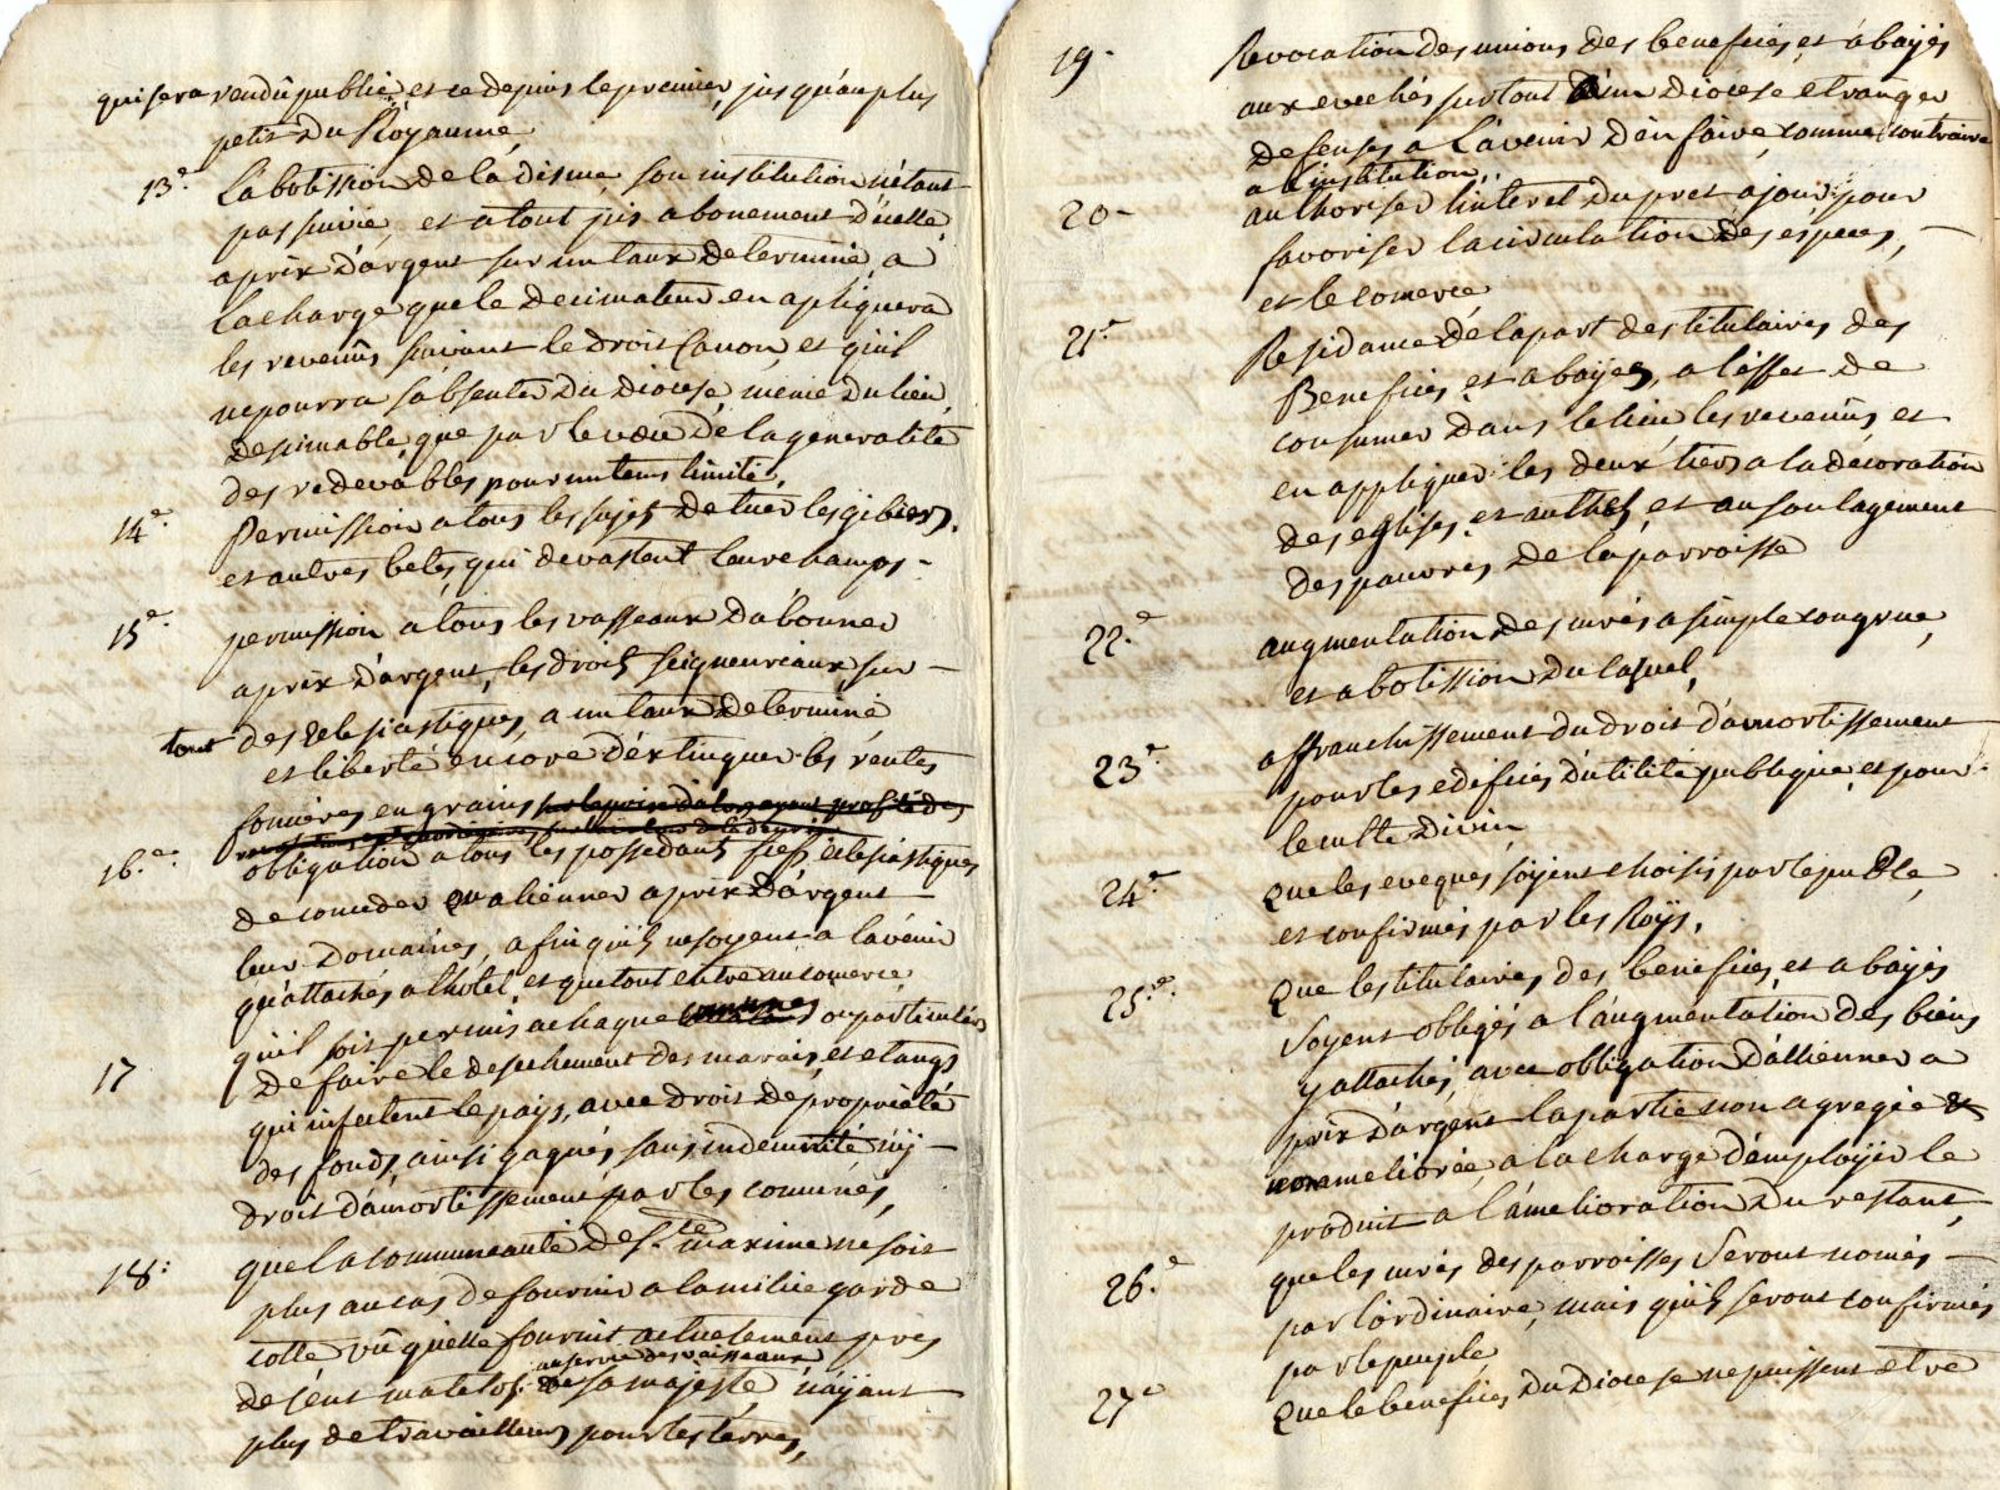 qui sera rendû public, et ce depuis le premier, jus qu'au plus
petit du Royaume,
13.e L'abolission de la disme, son institution n'étant
pas suivie, et a tout pis abonement d'icelle,
a prix d'argent sur un taux determiné, a
la charge que le decimateur en apliquera
les revenûs suivant le droit Canon, et qu'il
ne pourra s'absenter du diocese, même du lieu
desimable, que par le vœu de la generalité
des redevables pour un tems limité,
14.e Permission a tous les sujets de tuer les gibiers,
et autres betes, qui devastent leurs champs -
15.e permission a tous les vasseaux d'abonner
a prix d'argent, les droits seigneuriaux, sur -
tout des eclesiastiques, a un taux determiné
et liberté encore d'extinguer les rentes
foncières en grains
16.e obligation a tous les possedants fiefs eclesiastiques
de conceder ou alienner a prix d'argent
leur domaines, afin qu'ils ne soyent a l'avenir
qu'attachés a lhotel, et que tout entre au comerce,
17 qu'il soit permis a chaque comunes ou particuliers
de faire le desechement des marais, et etangs
qui infectent le pays, avec droit de propriété
des fonds, ainsi gagnés sans indemnité nij -
droit d'amortissement par les comunes,
18: que la communauté de Ste maxime ne soit
plus au cas de fournir a la milice garde
cotte vû qu'elle fournit actuelement près
de cent matelos au service des vaisseaux de sa majesté, n'ayant
plus de travailleurs pour les terres,
19 - Revocation des unions des benefices, et abayes
aux evechés surtout d'un diocese etranger
defenses a l'avenir d'en faire, comme contraire
a l'institution,
20 - authoriser l'interet du pret a jour pour
favoriser la circulation des éspeces, -
et le comerce
21.e Residance de la part des titulaires des
Benefices, et abayes, a l'effet de
consumer dans le lieu les revenûs et
en appliquer les deux tiers a la décoration
des eglises, et authels, et au soulagement
des pauvres de la parroisse
22.e augmentation des curés a simple congrue,
et abolission du casuel,
23.e affranchissement du droit d'amortissement
pour les edifices d'utilité publique, et pour
le culte divin
24.e Que les eveques soyent choisis par le puble,
et confirmés par les Roys,
25.e Que les titulaires, des benefices, et abayes
Soyent obligés a l'augmentation des biens
y attachés, avec obligation d'allienner a
prix d'argent la partie non agregée &
non ameliorée, a la charge d'employer le
produit a l'amelioration du restant,
26.e que les curés des parroisses Seront només -
par l'ordinaire, mais qu'ils seront confirmés
par le peuple
27.e Que le benefices du diocese ne puissent etre